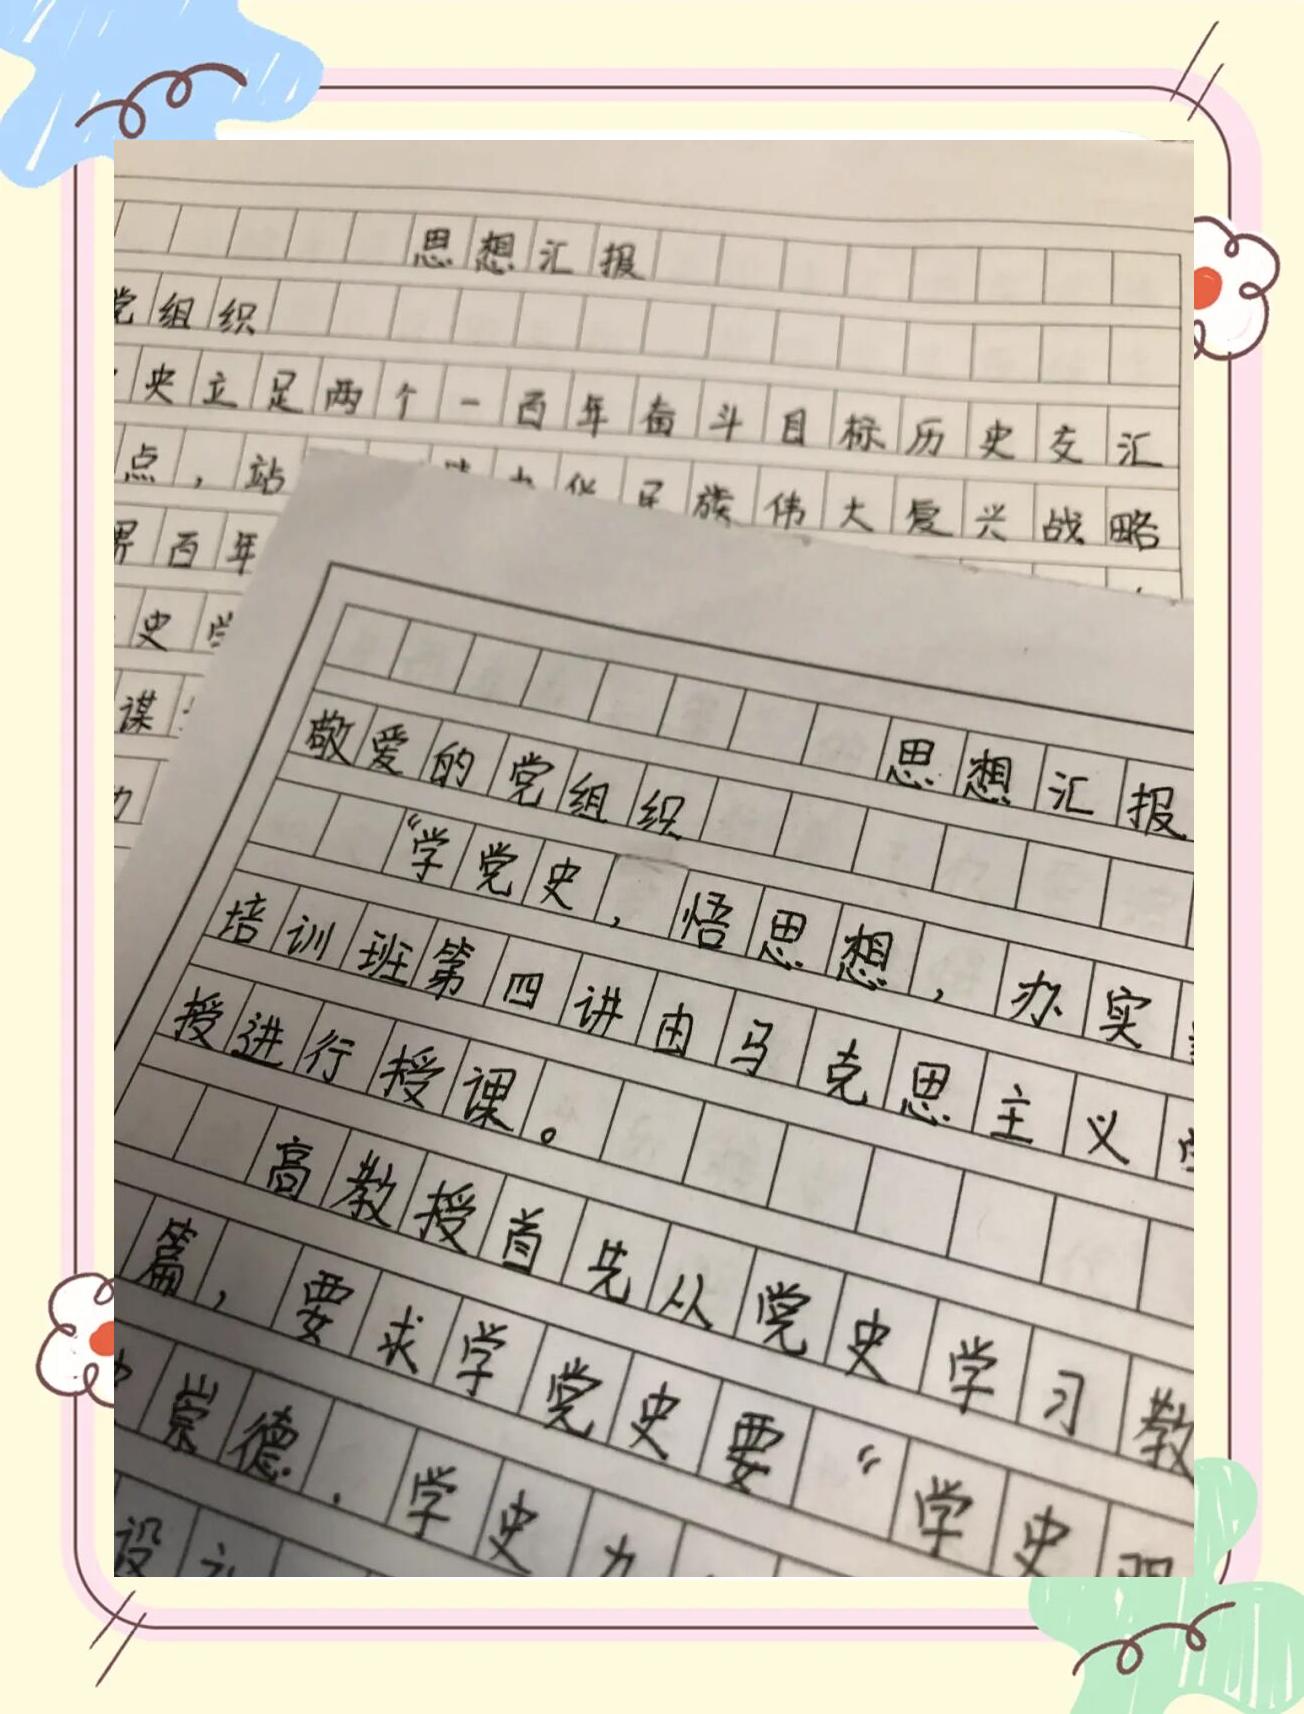 思想汇报
党组织
央立足两个一百年奋斗目标历史交汇
点，站 民族伟大复兴战略
界百年
史学
谋
思想汇报
敬爱的党组织
“学党史，悟思想，办实
培训班第四讲由马克思主义学
授进行授课。
高教授首先从党史学习教
篇，要求学党史要“学史
崇德．学史力
设